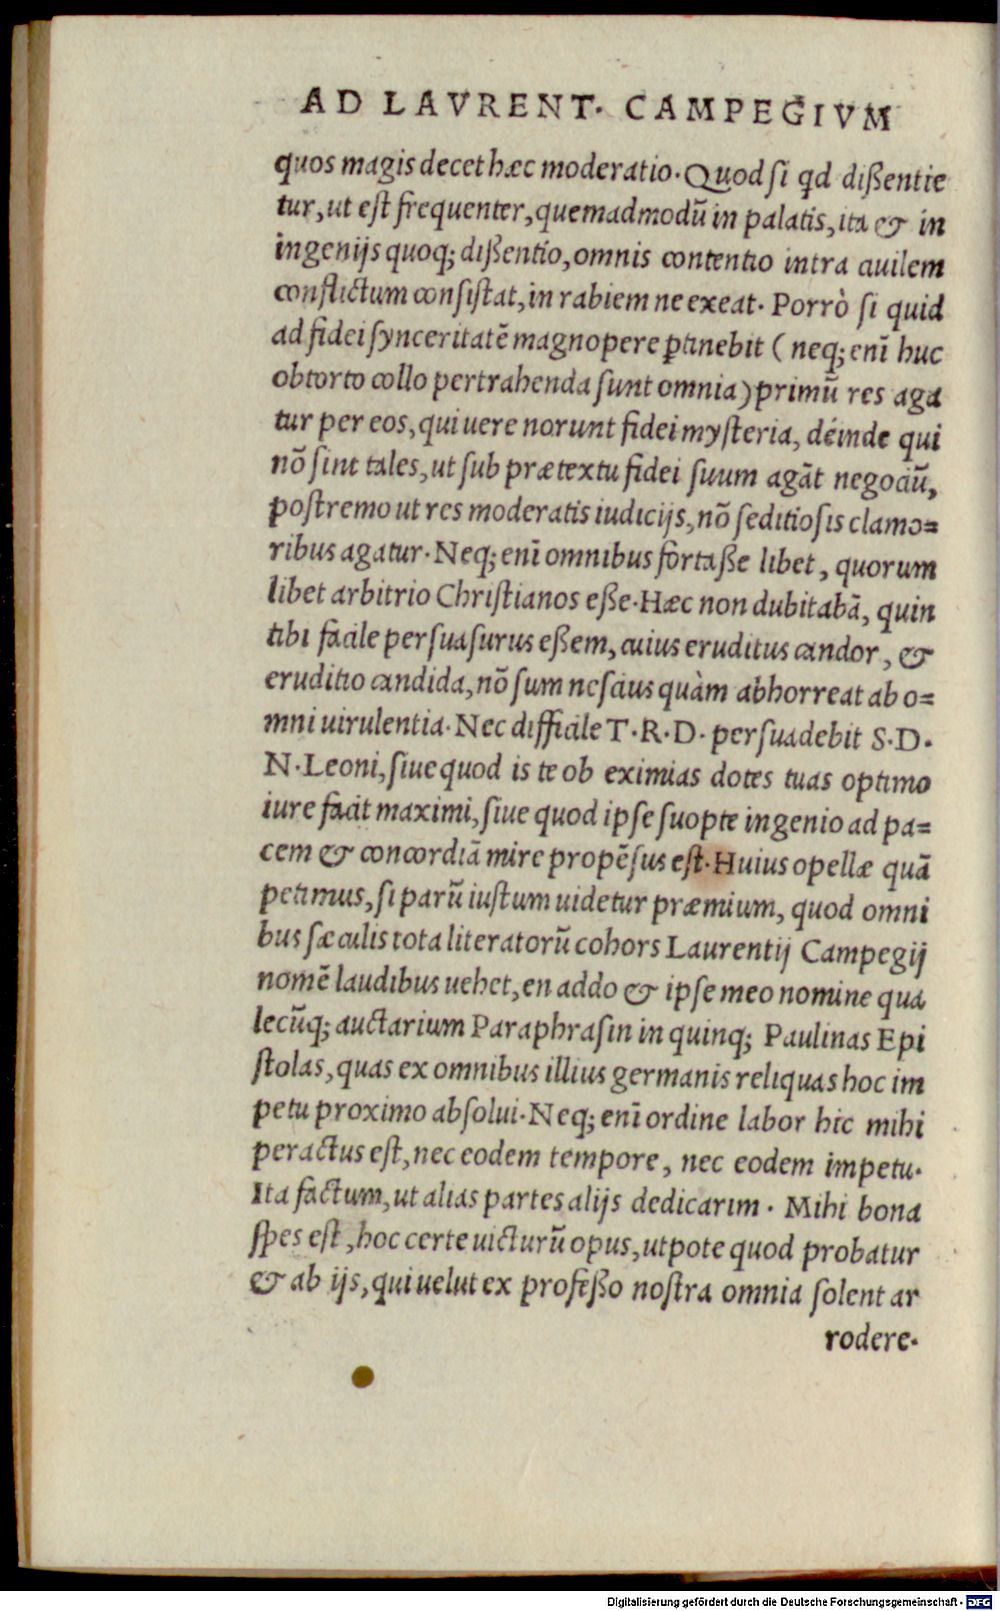 AD LAVRENT. CAMPEGIVM
quos magis decet hæc moderatio. Quod si qd dißentie
tur, ut est frequenter, quemadmodū in palatis, ita & in
ingenijs quoq; dißentio, omnis contentio intra ciuilem
conflictum consistat, in rabiem ne exeat. Porrò si quid
ad fidei synceritatē magnopere ꝑtinebit ( neq; enī huc
obtorto collo pertrahenda sunt omnia) primū res aga
tur per eos, qui uere norunt fidei mysteria, deinde qui
nō sint tales, ut sub prætextu fidei suum agāt negociū,
postremo ut res moderatis iudicijs, nō seditiosis clamo=
ribus agatur. Neq; enī omnibus fortaße libet, quorum
libet arbitrio Christianos eße. Hæc non dubitabā, quin
tibi facile persuasurus eßem, cuius eruditus candor, &
eruditio candida, nō sum nescius quàm abhorreat ab o=
mni uirulentia. Nec difficile T. R. D. persuadebit S. D.
N. Leoni, siue quod is te ob eximias dotes tuas optimo
iure facit maximi, siue quod ipse suopte ingenio ad pa=
cem & concordiā mire propēsus est. Huius opellæ quā
petimus, si parū iustum uidetur præmium, quod omni
bus sæculis tota literatorū cohors Laurentij Campegij
nomē laudibus uehet, en addo & ipse meo nomine qua
lecūq; auctarium Paraphrasin in quinq; Paulinas Epi
stolas, quas ex omnibus illius germanis reliquas hoc im
petu proximo absolui. Neq; enī ordine labor hic mihi
peractus est, nec eodem tempore, nec eodem impetu.
Ita factum, ut alias partes alijs dedicarim. Mihi bona
spes est, hoc certe uicturū opus, utpote quod probatur
& ab ijs, qui uelut ex profeßo nostra omnia solent ar
rodere.
Digitalisierung gefördert durch die Deutsche Forschungsgemeinschaft - DFG